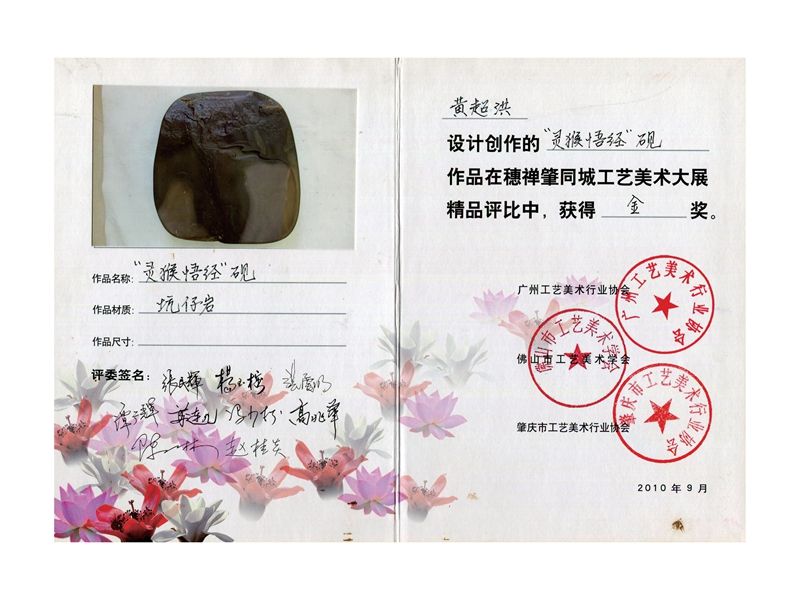 作品名称：“灵猴悟经”砚
作品材质：坑仔岩
作品尺寸：
评委签名：
高兆华
赵桂炎
黄超洪
设计创作的“灵猴悟经”砚
作品在穗禅肇同城工艺美术大展
精品评比中，获得 金 奖。
广州工艺美术行业协会
广州工艺美术行业协会
佛山市工艺美术学会
佛山市工艺美术学会
肇庆市工艺美术行业协会
肇庆市工艺美术行业协会
2010 年 9 月